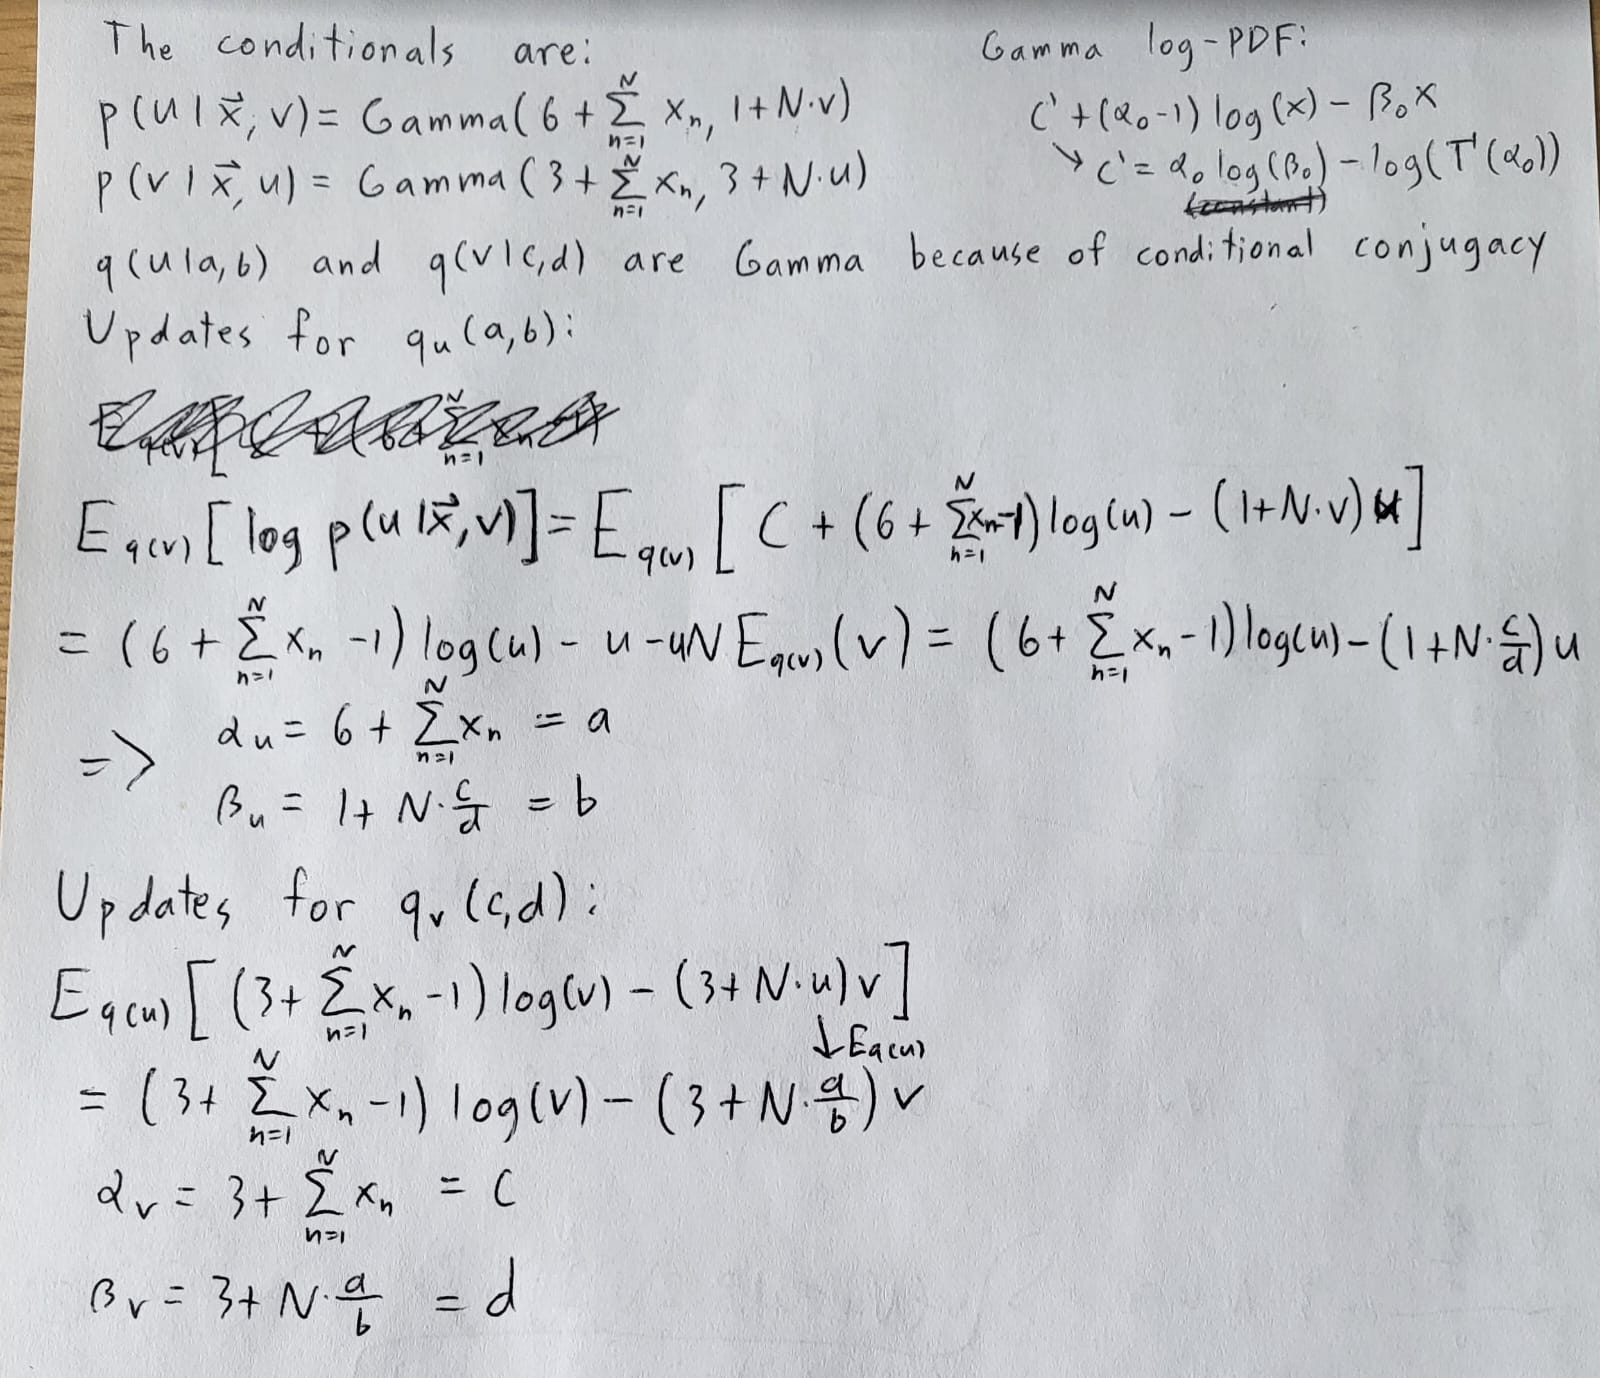 The conditionals are:
p(u|x⃗, v) = Gamma(6 + ∑_{n=1}^{N} x_n, 1+N·v)
p(v|x⃗, u) = Gamma(3 + ∑_{n=1}^{N} x_n, 3+N·u)
Gamma log-PDF:
C' + (α_0-1) log(x) - β_0 x
↘ C' = α_0 log(β_0) - log(Γ(α_0))
q(u|a,b) and q(v|c,d) are Gamma because of conditional conjugacy
Updates for q_u(a,b):
E_{q(v)}[log p(u|x⃗, v)] = E_{q(v)}[C + (6 + ∑_{n=1}^{N} x_n-1) log(u) - (1+N·v) u]
= (6 + ∑_{n=1}^{N} x_n -1) log(u) - u - uN E_{q(v)}(v) = (6 + ∑_{n=1}^{N} x_n -1) log(u) - (1+N·c/d) u
=> α_u = 6 + ∑_{n=1}^{N} x_n = a
β_u = 1 + N·c/d = b
Updates for q_v(c,d):
E_{q(u)}[(3 + ∑_{n=1}^{N} x_n -1) log(v) - (3+N·u) v]
↓ E_{q(u)}
= (3 + ∑_{n=1}^{N} x_n -1) log(v) - (3+N·a/b) v
α_v = 3 + ∑_{n=1}^{N} x_n = c
β_v = 3 + N·a/b = d